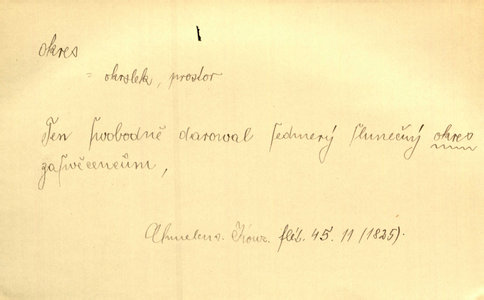 okres
= okrslek, prostor
Ten swobodně darowal sedmerý slunečný okres
zaswěcencům,
Chmelens. Kouz. flét. 45. 11 (1825).